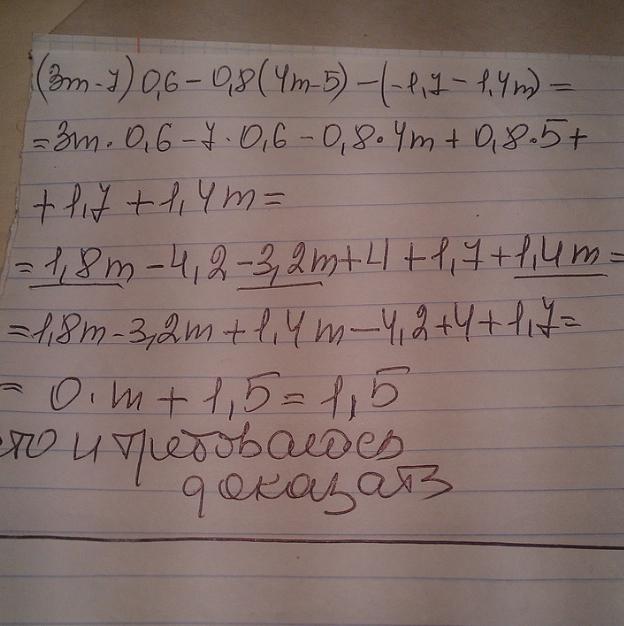 (3m-7)0,6-0,8(4m-5)-(-1,7-1,4m)=
=3m·0,6-7·0,6-0,8·4m+0,8·5+
+1,7+1,4m=
=1,8m-4,2-3,2m+4+1,7+1,4m=
=1,8m-3,2m+1,4m-4,2+4+1,7=
= 0·m+1,5=1,5
что и требовалось
доказать